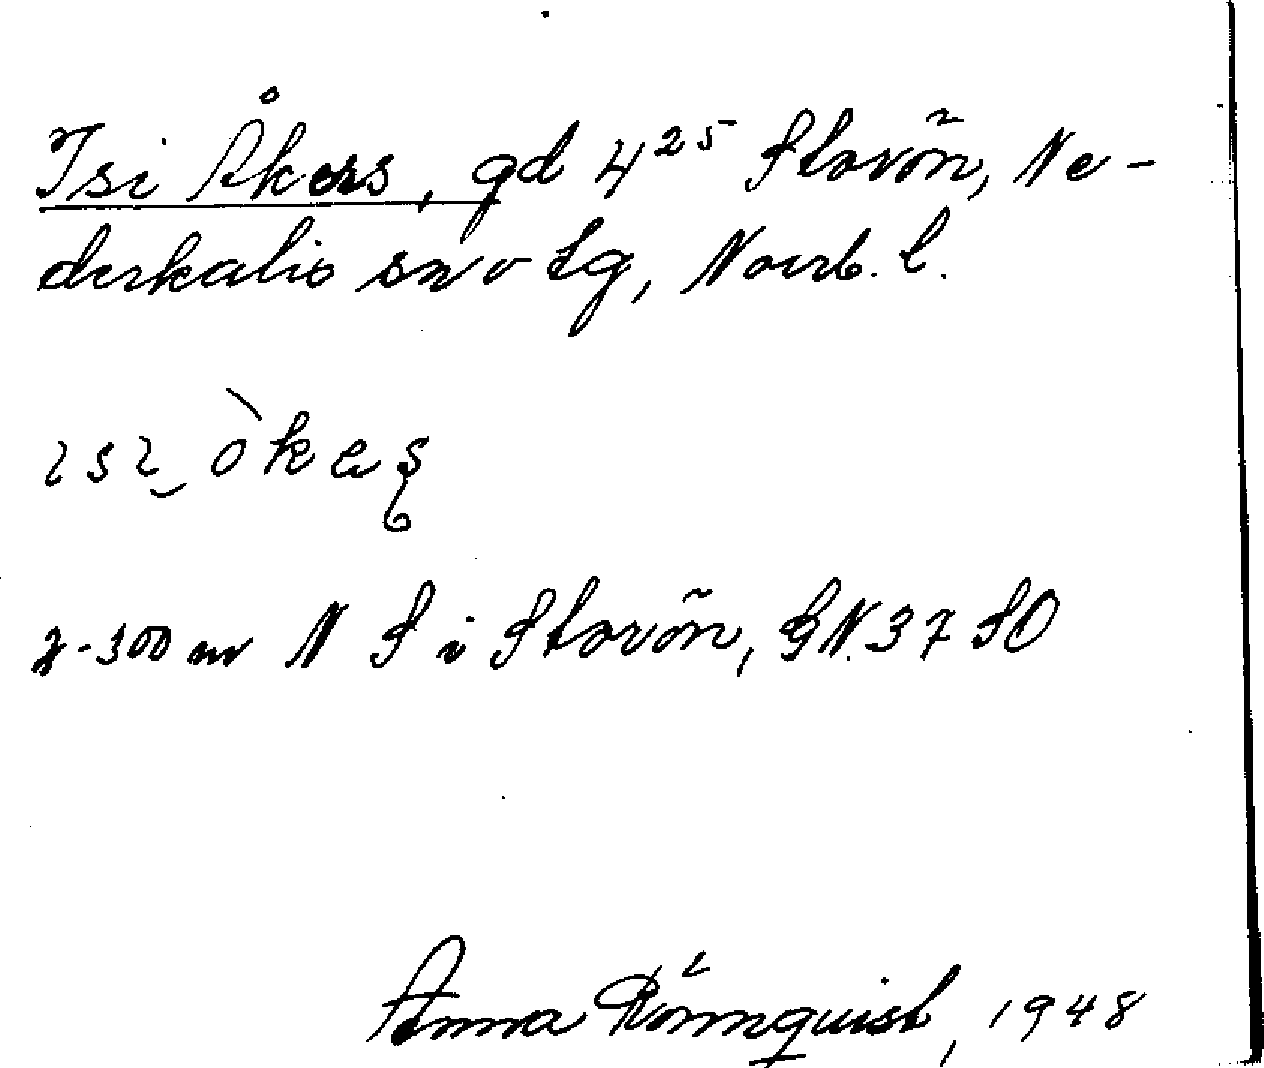 Isi Åkers, gd 4²⁵ Storön, Ne-
derkalix sn o tg, Norrb. l.
ɩsɩ‿òkeş
2-300 m N S i Storön, GN. 37 SO
Anna Rönnquist, 1948